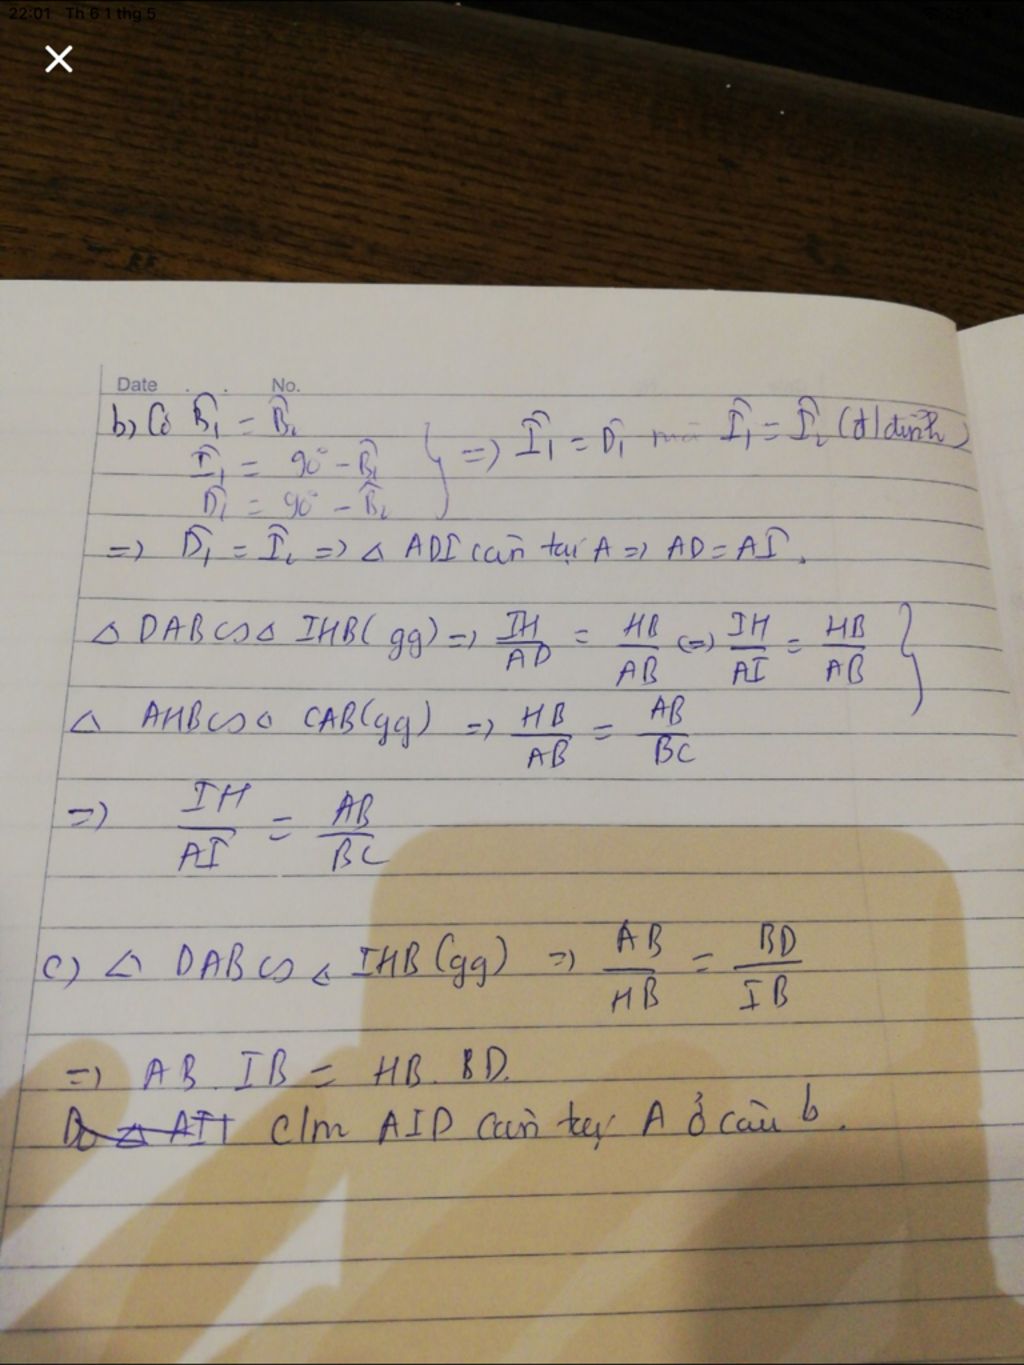 22:01 Th 6 1 thg 5
Date . . No.
b) Có B̂₁ = B̂₂
Î₁ = 90° - B̂₁
D̂₁ = 90° - B̂₂
=> Î₁ = D̂₁ mà Î₁ = Î₂ (đ/đỉnh)
=> D̂₁ = Î₂ => △ ADI cân tại A => AD = AI.
△ DAB ∽ △ IHB (gg) => IH/AD = HB/AB <=> IH/AI = HB/AB
△ AHB ∽ △ CAB (gg) => HB/AB = AB/BC
=> IH/AI = AB/BC
c) △ DAB ∽ △ IHB (gg) => AB/HB = BD/IB
=> AB . IB = HB . BD.
c/m AID cân tại A ở câu b.